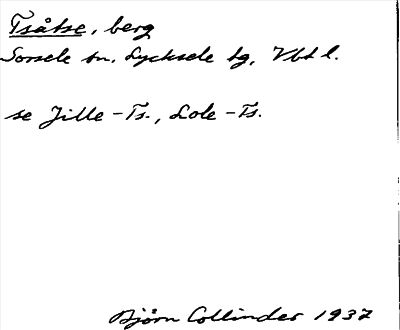 Tsåtse, berg
Sorsele sn. Lycksele tg, Vbtl.
se Jille-Ts., Lole-Ts.
Björn Collinder 1937